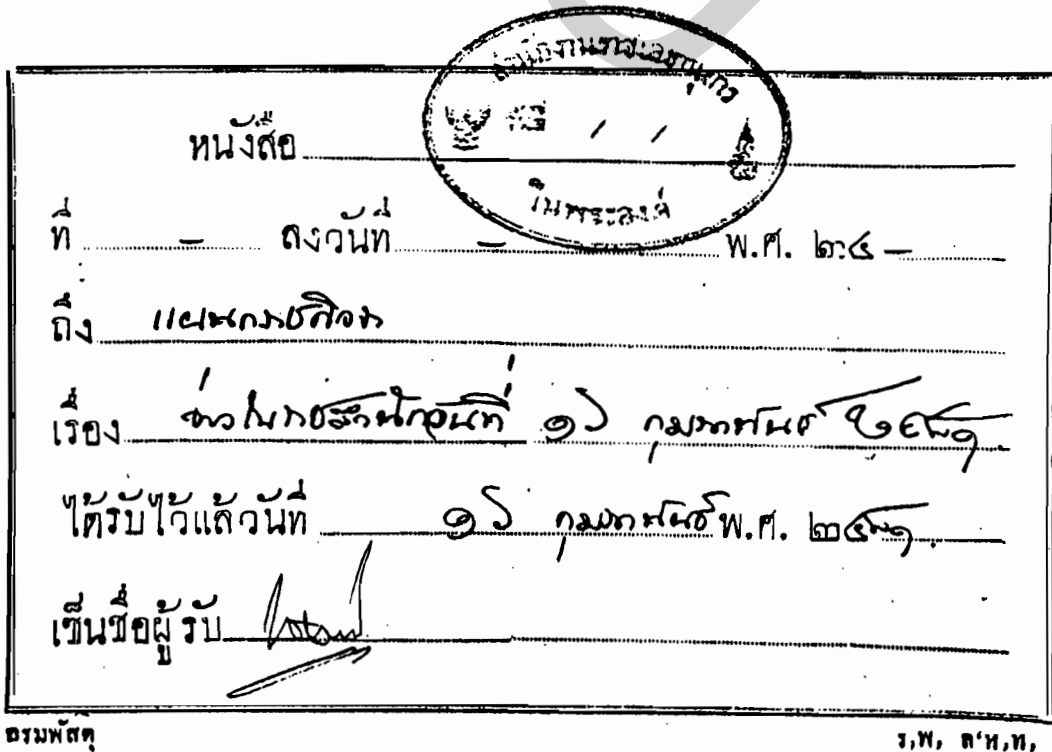 สำนักงานราชเลขานุการ
วันที่ / /
ในพระองค์
หนังสือ
ที่ - ลงวันที่ - พ.ศ. ๒๔ -
ถึง แผนกราชกิจจา
เรื่อง ข่าวในราชสำนักวันที่ ๑๖ กุมภาพันธ์ ๒๔๘๑
ได้รับไว้แล้ววันที่ ๑๖ กุมภาพันธ์ พ.ศ. ๒๔๘๑
เซ็นชื่อผู้รับ